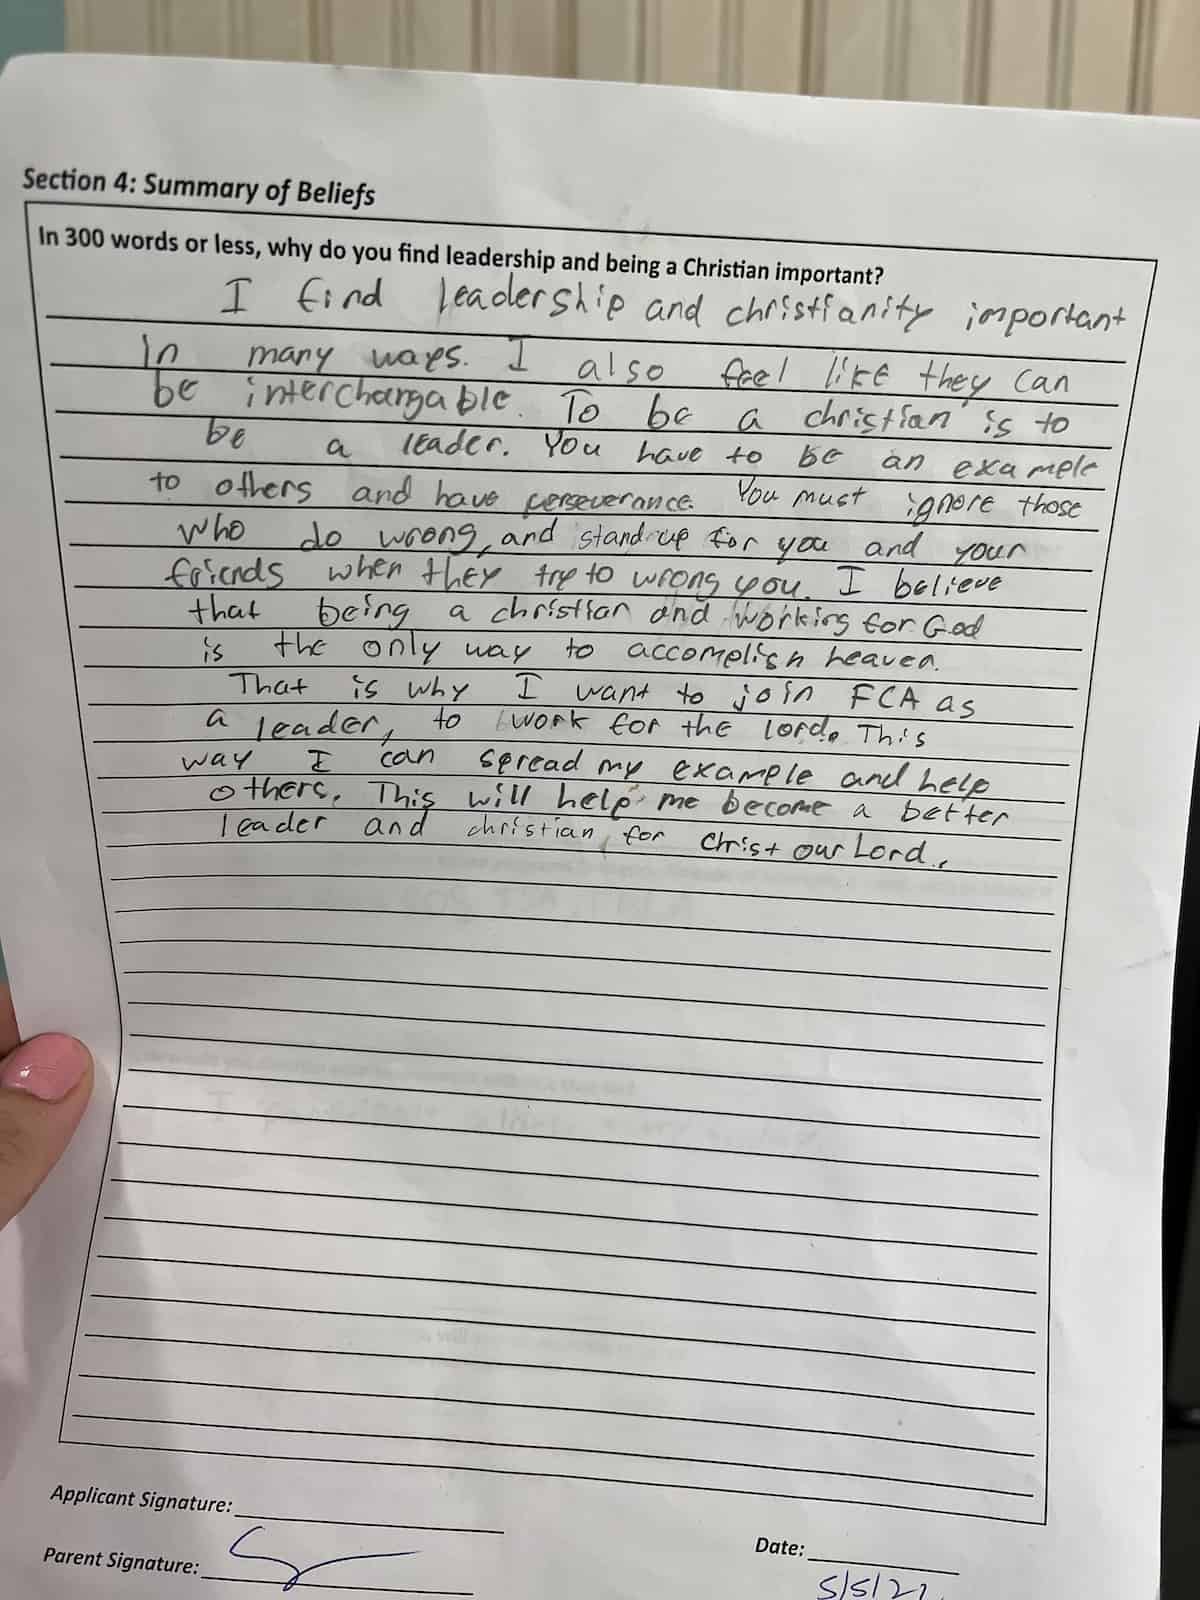 Section 4: Summary of Beliefs
In 300 words or less, why do you find leadership and being a Christian important?
I find leadership and christianity important
in many ways. I also feel like they can
be interchargable. To be a christian is to
be a leader. You have to be an example
to others and have perseverance. You must ignore those
who do wrong, and stand up for you and your
friends when they try to wrong you. I believe
that being a christian and working for God
is the only way to accomplish heaven.
That is why I want to join FCA as
a leader, to work for the lord. This
way I can spread my example and help
others. This will help me become a better
leader and christian, for Christ our Lord.
Applicant Signature:
Date:
Parent Signature: